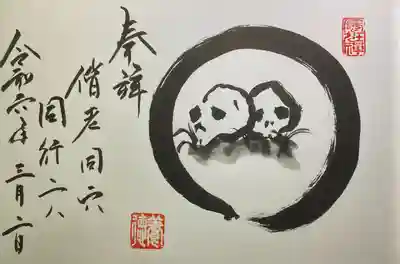 奉拝
偕老同穴
同行二人
令和六年三月二日